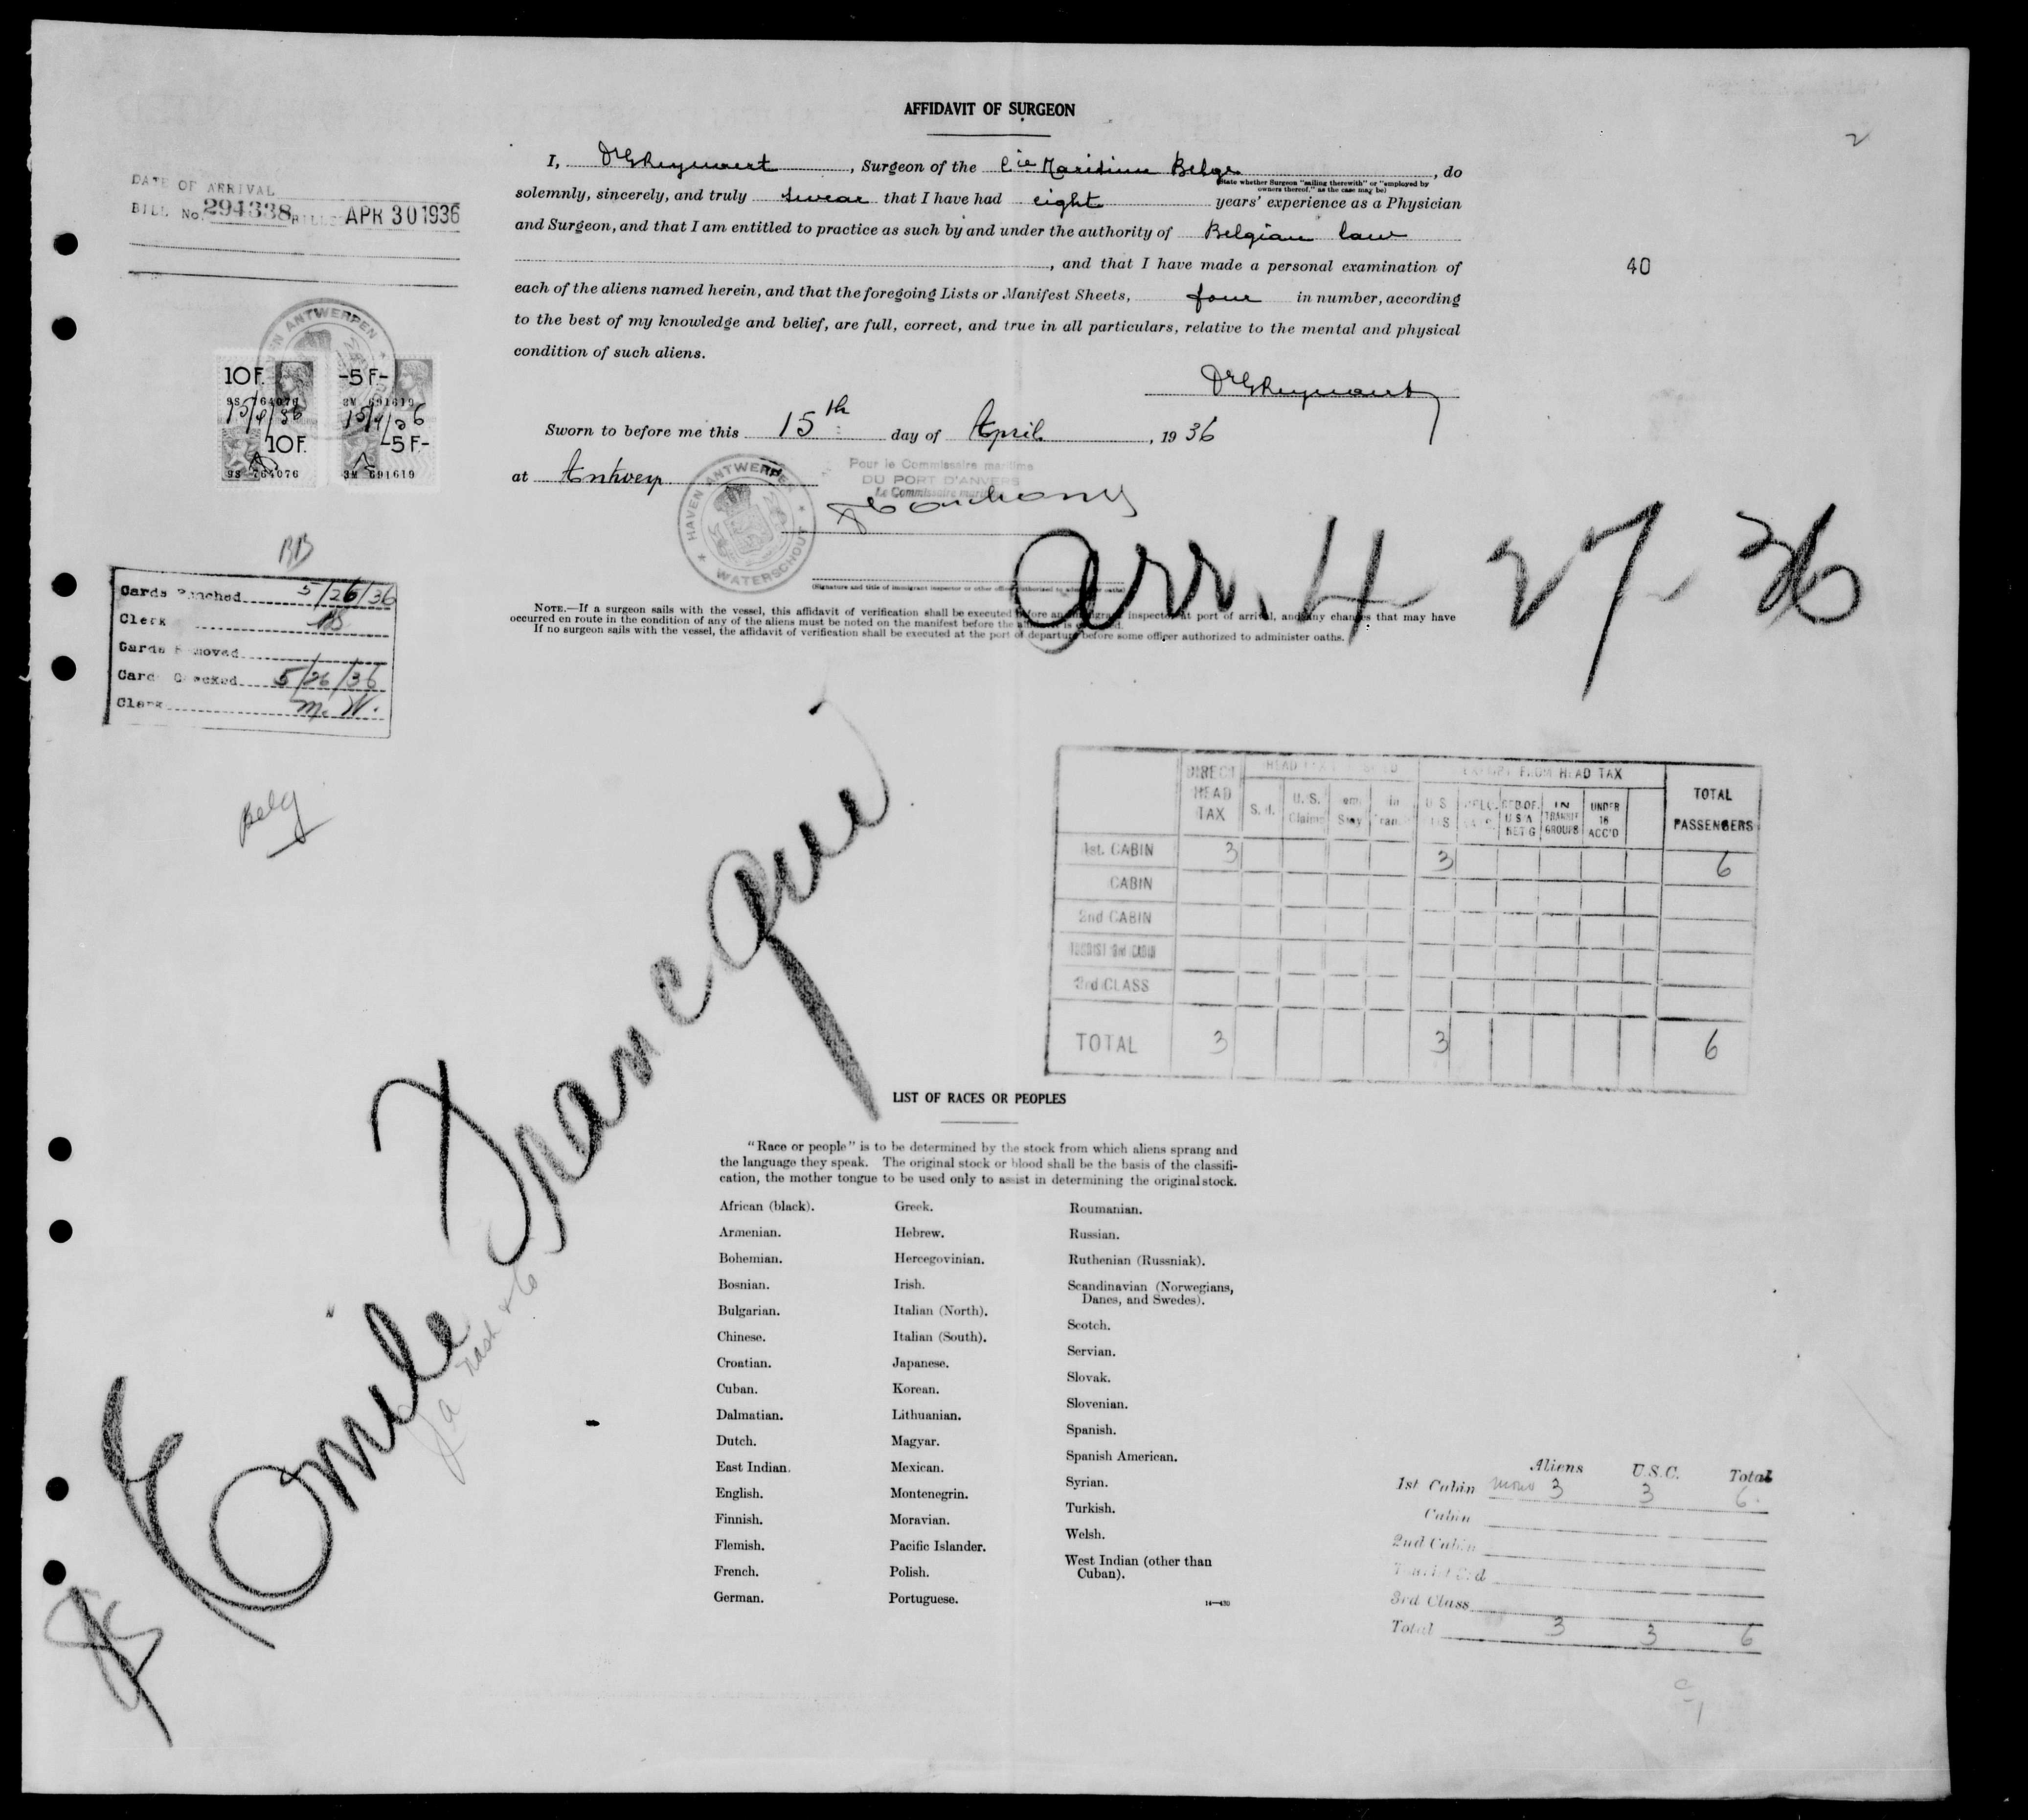 2
AFFIDAVIT OF SURGEON
I, , Surgeon of the Cie Maritime Belge , do
(State whether Surgeon "sailing therewith" or "employed by
owners thereof," as the case may be)
solemnly, sincerely, and truly swear that I have had eight years' experience as a Physician
and Surgeon, and that I am entitled to practice as such by and under the authority of Belgian law
, and that I have made a personal examination of
each of the aliens named herein, and that the foregoing Lists or Manifest Sheets, four in number, according
to the best of my knowledge and belief, are full, correct, and true in all particulars, relative to the mental and physical
condition of such aliens.
Sworn to before me this 15th day of April , 19 36
at Antwerp
HAVEN ANTWERPEN
WATERSCHOUT
Pour le Commissaire maritime
DU PORT D'ANVERS
Le Commissaire maritime
(Signature and title of immigrant inspector or other officer authorized to administer oaths)
NOTE.—If a surgeon sails with the vessel, this affidavit of verification shall be executed before an immigrant inspector at port of arrival, and any changes that may have
occurred en route in the condition of any of the aliens must be noted on the manifest before the affidavit is executed.
If no surgeon sails with the vessel, the affidavit of verification shall be executed at the port of departure before some officer authorized to administer oaths.
Arr. 4-27-36
40
DATE OF ARRIVAL
BILL No. 294338 BILLS APR 30 1936
HAVEN ANTWERPEN
10F. -5F-
9S 764076 3M 691619
15/4/36 15/4/36
10F. -5F-
9S 764076 3M 691619
BB
Cards Punched 5/26/36
Clerk
Cards Removed
Card Checked 5/26/36
Clerk M. W.
Belg
Emile Francqui
DIRECT HEAD TAX
S. I.
U.S. Claims
Tem. Stay
In Tran.
EXEMPT FROM HEAD TAX
IN TRANSIT GROUPS
UNDER 16 ACC'D
TOTAL PASSENGERS
1st. CABIN 3 3 6
CABIN
2nd CABIN
TOURIST 3rd CABIN
3rd CLASS
TOTAL 3 3 6
LIST OF RACES OR PEOPLES
"Race or people" is to be determined by the stock from which aliens sprang and
the language they speak. The original stock or blood shall be the basis of the classifi-
cation, the mother tongue to be used only to assist in determining the original stock.
African (black).
Armenian.
Bohemian.
Bosnian.
Bulgarian.
Chinese.
Croatian.
Cuban.
Dalmatian.
Dutch.
East Indian.
English.
Finnish.
Flemish.
French.
German.
Greek.
Hebrew.
Hercegovinian.
Irish.
Italian (North).
Italian (South).
Japanese.
Korean.
Lithuanian.
Magyar.
Mexican.
Montenegrin.
Moravian.
Pacific Islander.
Polish.
Portuguese.
Roumanian.
Russian.
Ruthenian (Russniak).
Scandinavian (Norwegians,
Danes, and Swedes).
Scotch.
Servian.
Slovak.
Slovenian.
Spanish.
Spanish American.
Syrian.
Turkish.
Welsh.
West Indian (other than
Cuban).
14—430
Aliens U.S.C. Total
1st Cabin 3 3 6
Cabin
2nd Cabin
Tourist 3rd
3rd Class
Total 3 3 6